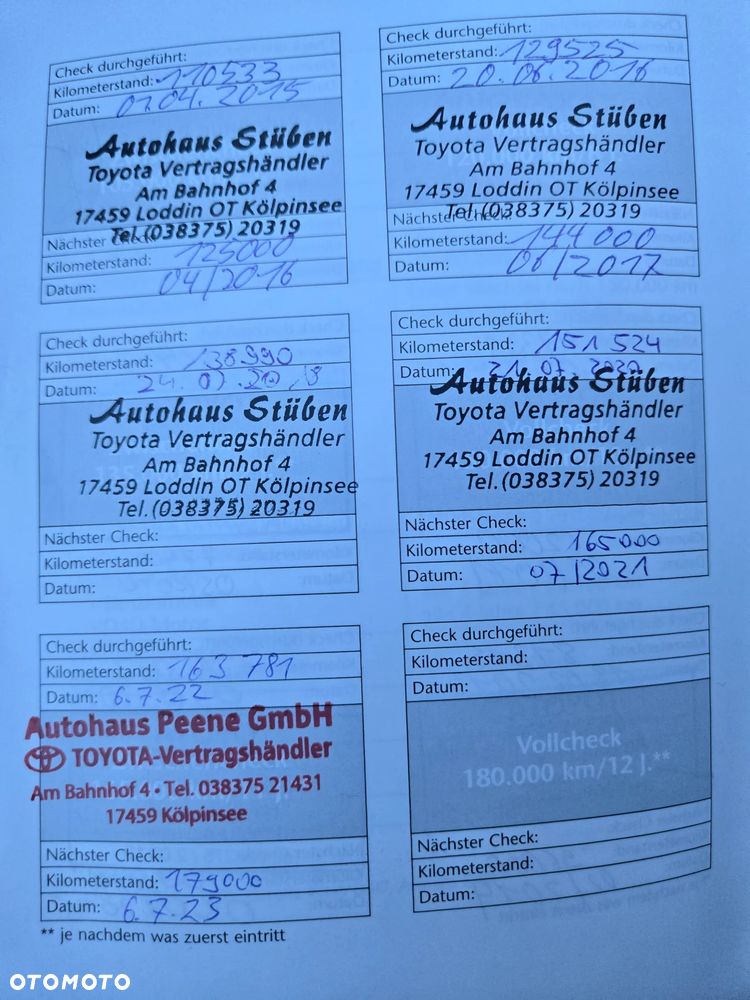 Check durchgeführt:
Kilometerstand: 110533
Datum: 01.04.2015
Autohaus Stüben
Toyota Vertragshändler
Am Bahnhof 4
17459 Loddin OT Kölpinsee
Tel.(038375) 20319
Nächster Check:
Kilometerstand: 125000
Datum: 04/2016
Check durchgeführt:
Kilometerstand: 129525
Datum: 20.06.2016
Autohaus Stüben
Toyota Vertragshändler
Am Bahnhof 4
17459 Loddin OT Kölpinsee
Tel.(038375) 20319
Nächster Check:
Kilometerstand: 144000
Datum: 06/2017
Check durchgeführt:
Kilometerstand: 138990
Datum: 24.07.
Autohaus Stüben
Toyota Vertragshändler
Am Bahnhof 4
17459 Loddin OT Kölpinsee
Tel.(038375) 20319
Nächster Check:
Kilometerstand:
Datum:
Check durchgeführt:
Kilometerstand: 151524
Datum: 21.07.2020
Autohaus Stüben
Toyota Vertragshändler
Vollcheck
Am Bahnhof 4
17459 Loddin OT Kölpinsee
Tel.(038375) 20319
Nächster Check:
Kilometerstand: 165000
Datum: 07/2021
Check durchgeführt:
Kilometerstand: 163 781
Datum: 6.7.22
Autohaus Peene GmbH
TOYOTA-Vertragshändler
Am Bahnhof 4 • Tel. 038375 21431
17459 Kölpinsee
Nächster Check:
Kilometerstand: 179000
Datum: 6.7.23
Check durchgeführt:
Kilometerstand:
Datum:
Vollcheck
180.000 km/12 J.**
Nächster Check:
Kilometerstand:
Datum:
** je nachdem was zuerst eintritt
OTOMOTO